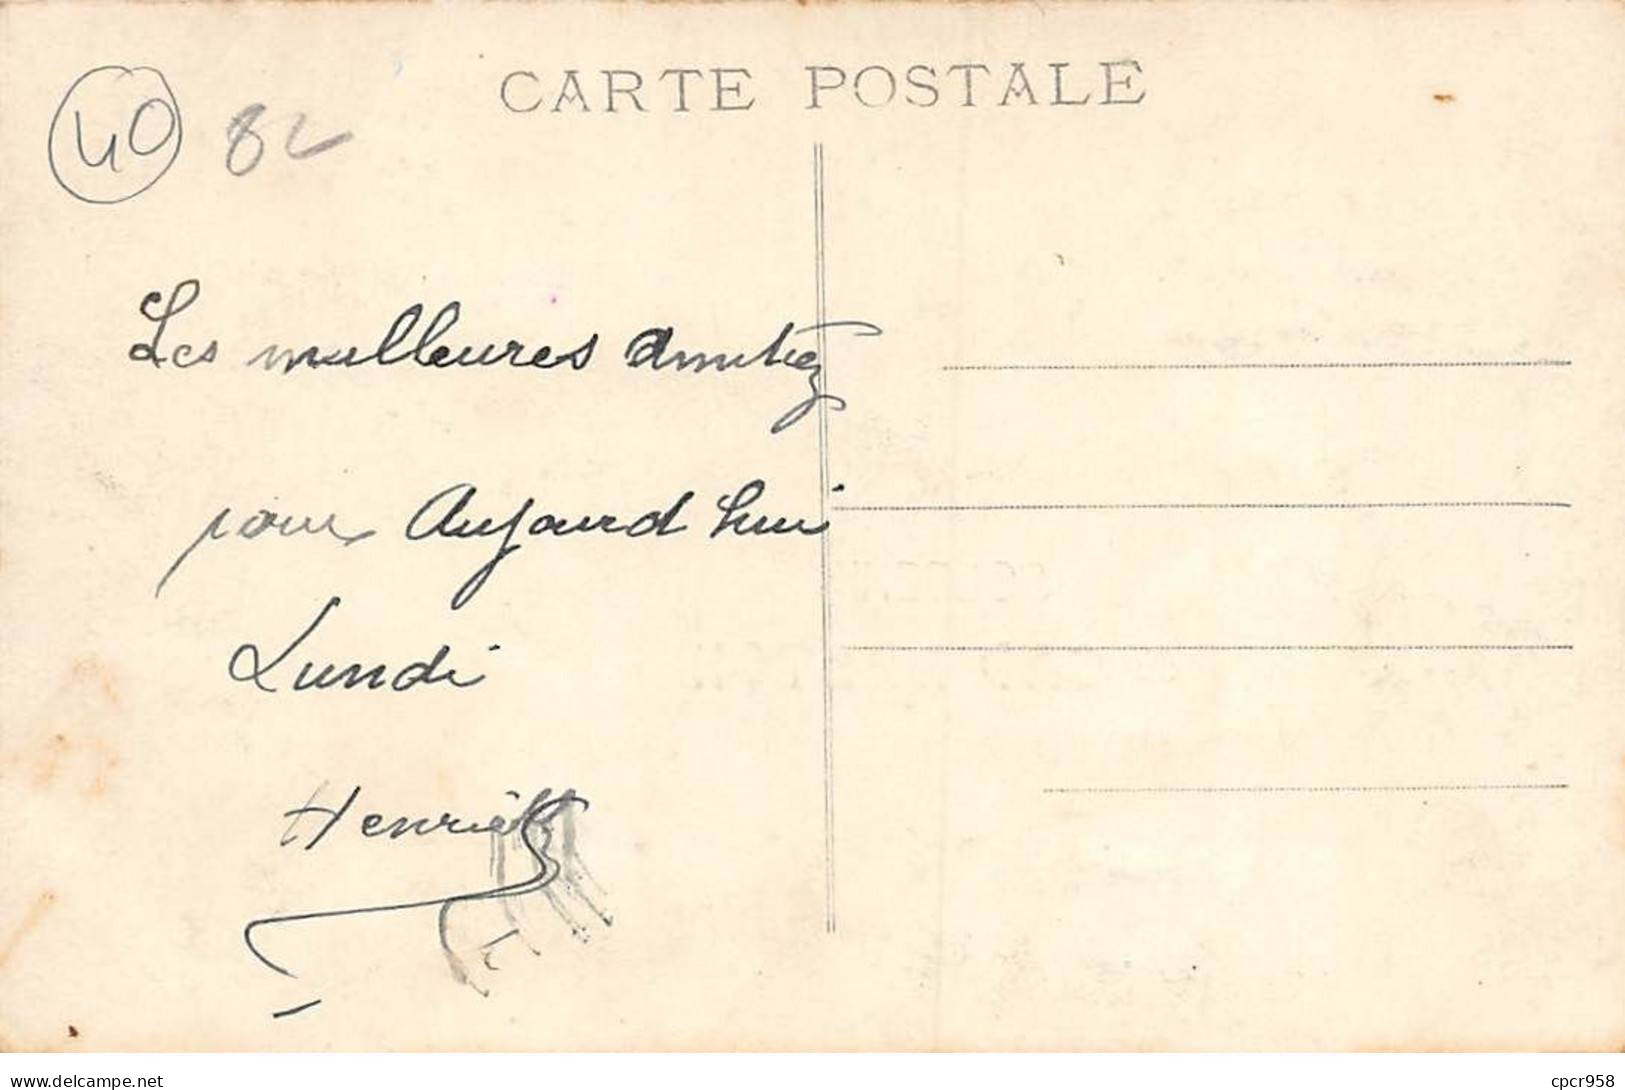 CARTE POSTALE
40 82
Les meilleures amitiez
pour Aujourd hui
Lundi
Henriett
www.delcampe.net
cpcr958